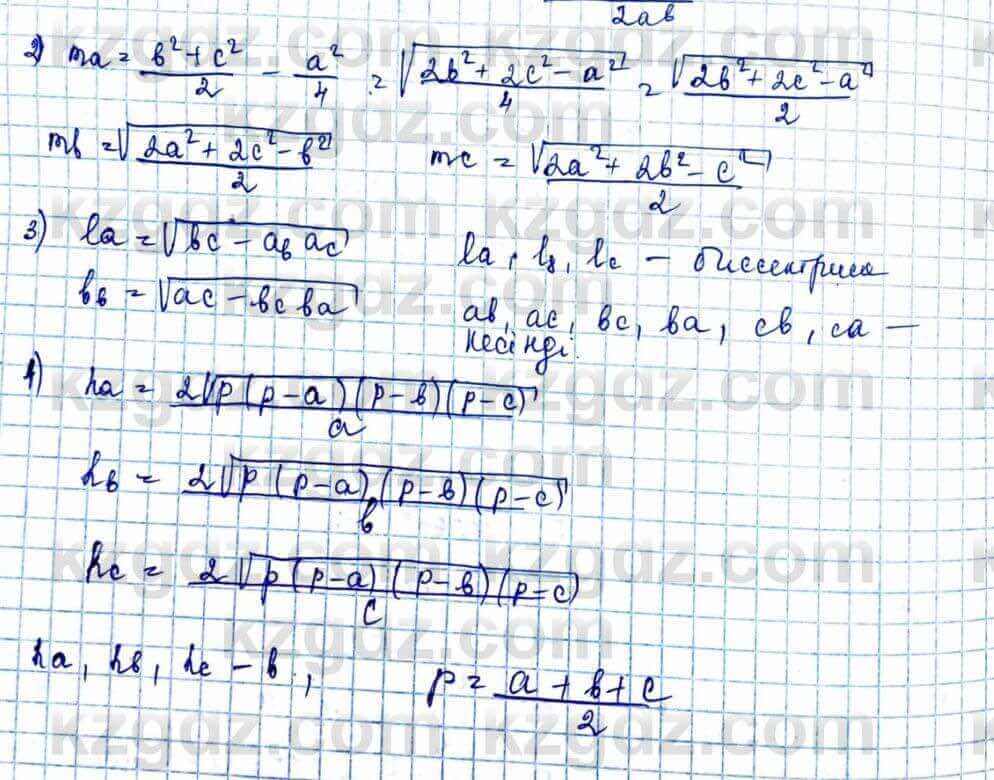 2ab
2) ma = b²+c²/2 - a²/4 = √2b²+2c²-a²/4 = √2b²+2c²-a²/2
mb = √2a²+2c²-b²/2 mc = √2a²+2b²-c²/2
3) la = √bc-ab ac la, lb, lc - биссектриса
bb = √ac-bc ba ab, ac, bc, ba, cb, ca -
кесінді.
4) ha = 2√p(p-a)(p-b)(p-c)/a
hb = 2√p(p-a)(p-b)(p-c)/b
hc = 2√p(p-a)(p-b)(p-c)/c
ha, hb, hc - b, p = a+b+c/2
kzgdz.com